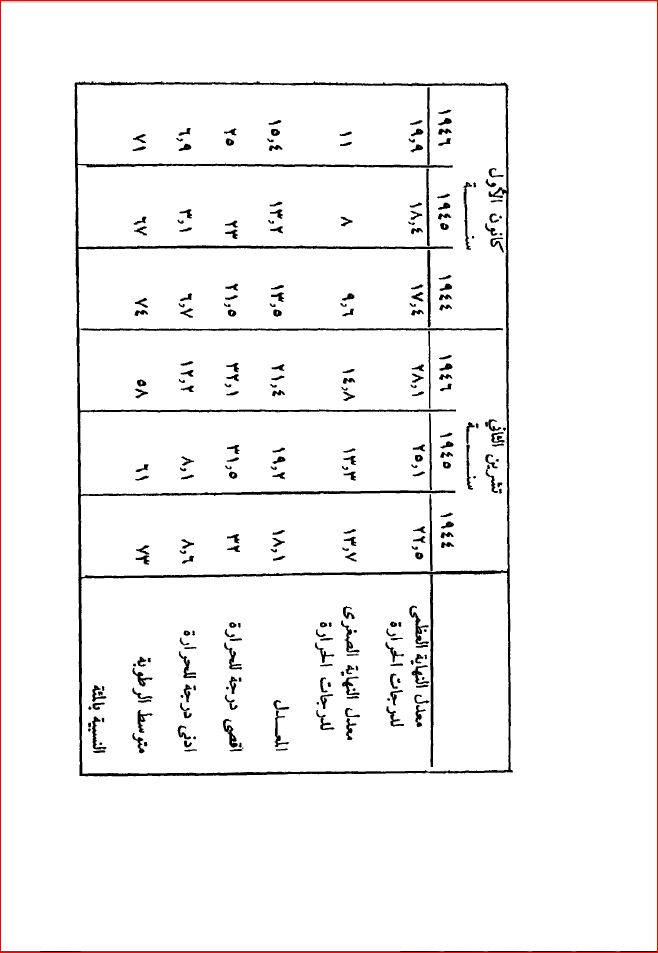 تشرين الثاني كانون الأول
سنة سنة
١٩٤٤ ١٩٤٥ ١٩٤٦ ١٩٤٤ ١٩٤٥ ١٩٤٦
معدل النهاية العظمى ٢٢,٥ ٢٥,١ ٢٨,١ ١٧,٤ ١٨,٤ ١٩,٩
لدرجات الحرارة
معدل النهاية الصغرى ١٣,٧ ١٣,٣ ١٤,٨ ٩,٦ ٨ ١١
لدرجات الحرارة
المعدل ١٨,١ ١٩,٢ ٢١,٤ ١٣,٥ ١٣,٢ ١٥,٤
اقصى درجة للحرارة ٣٢ ٣١,٥ ٣٢,١ ٢١,٥ ٢٣ ٢٥
ادنى درجة للحرارة ٨,٦ ٨,١ ١٢,٢ ٦,٧ ٣,١ ٦,٩
متوسط الرطوبة ٧٣ ٦١ ٥٨ ٧٤ ٦٧ ٧١
النسبية بالمئة